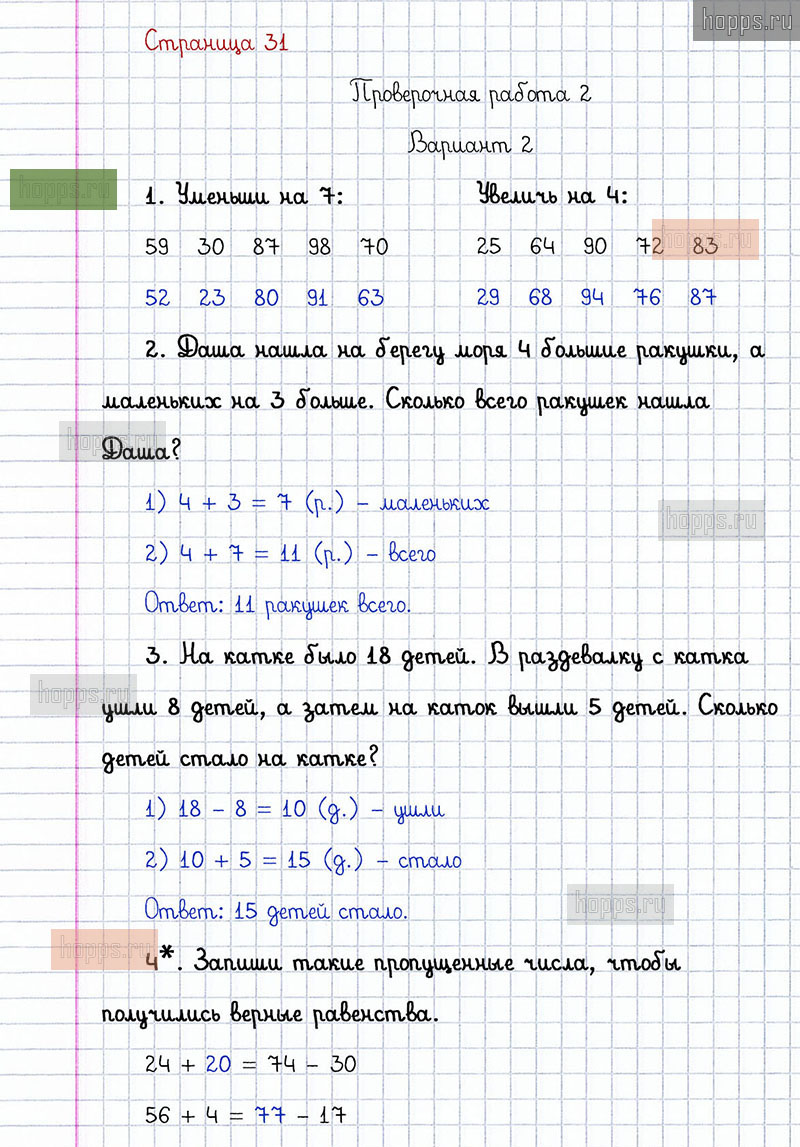 hopps.ru
Страница 31
Проверочная работа 2
Вариант 2
hopps.ru
1. Уменьши на 7: Увеличь на 4:
59 30 87 98 70 25 64 90 72 83
hopps.ru
52 23 80 91 63 29 68 94 76 87
2. Даша нашла на берегу моря 4 большие ракушки, а
маленьких на 3 больше. Сколько всего ракушек нашла
hopps.ru
Даша?
1) 4 + 3 = 7 (р.) – маленьких
hopps.ru
2) 4 + 7 = 11 (р.) – всего
Ответ: 11 ракушек всего.
3. На катке было 18 детей. В раздевалку с катка
hopps.ru
ушли 8 детей, а затем на каток вышли 5 детей. Сколько
детей стало на катке?
1) 18 – 8 = 10 (д.) – ушли
2) 10 + 5 = 15 (д.) – стало
hopps.ru
Ответ: 15 детей стало.
hopps.ru
4*. Запиши такие пропущенные числа, чтобы
получились верные равенства.
24 + 20 = 74 – 30
56 + 4 = 77 – 17